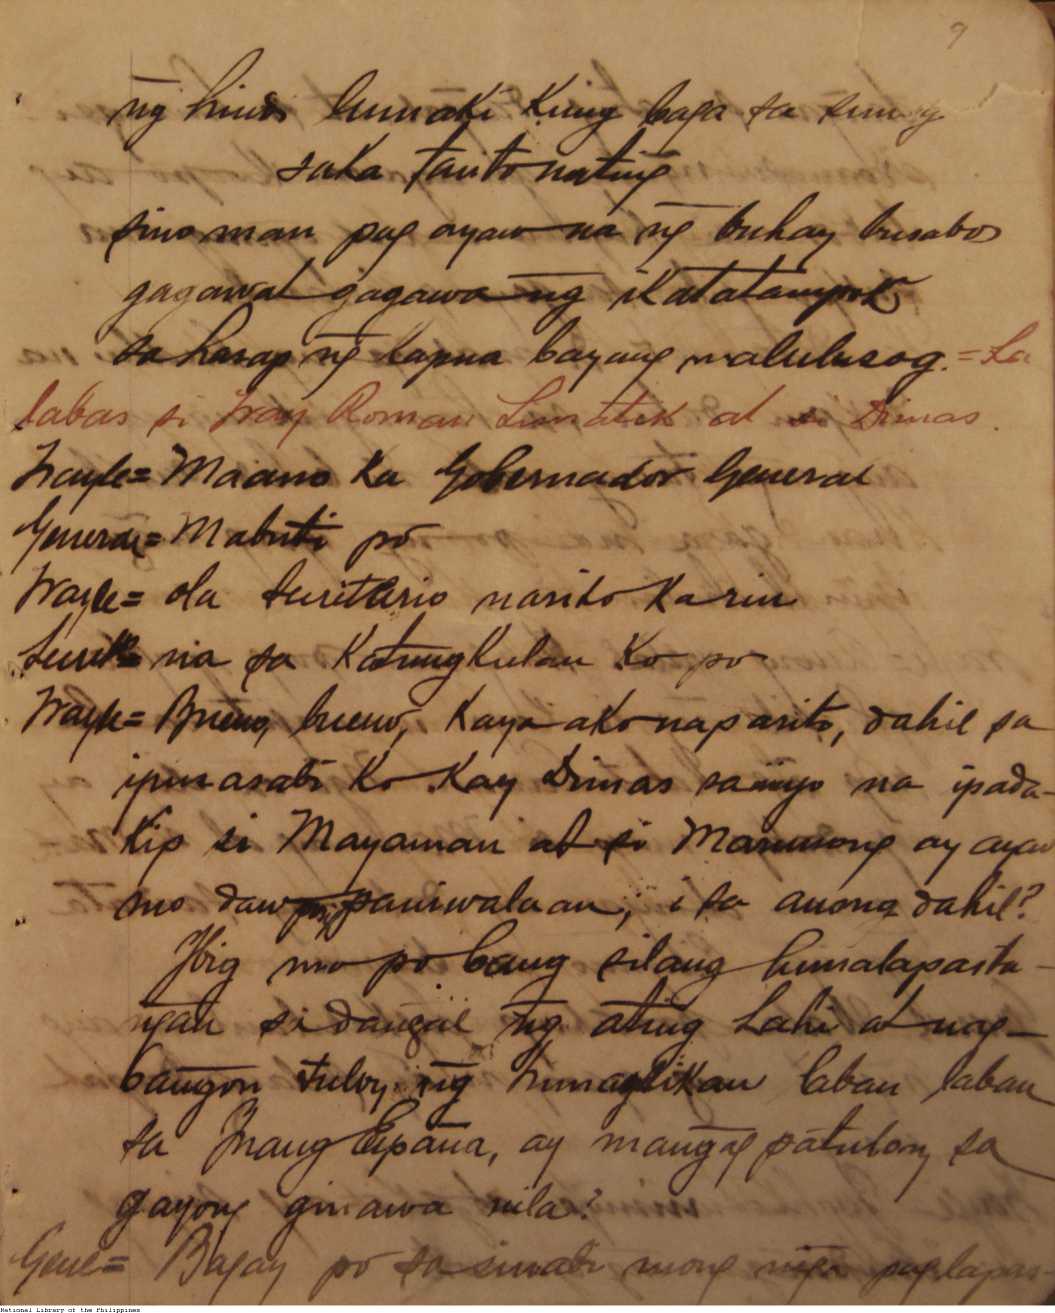 9
ng̃ hindi lumaki kung baga sa sunog
saka tanto nating̃
sino man pag ayaw na ng̃ buhay busabos
gagawat gagawa ng̃ ikatatampok
sa harap ng̃ kapua bayang malulusog. = La
labas si Fray Roman Lunatik at si Dimas.
Frayle = Maano ka Gobernador General
General = Mabuti po
Frayle = ola Secritario narito ka rin
Secrit = nia sa Katungkulan Ko po
Frayle = Bueno, bueno, Kaya ako naparito, dahil sa
ipinasabi Ko Kay Dimas sainyo na ipada-
Kip si Mayaman at si Marunong ay ayaw
mo daw paniwalaan, i sa anong dahil?
Ibig mo po bang silang lumalapasta-
ng̃an si dang̃al ng̃ ating Lahi at nag-
bang̃on tuloy ng̃ himagsikan laban laban
sa Inang España, ay mang̃ag patuloy sa
gayong ginawa nila?
Gene = Bagay po sa sinabi mong mg̃a paglapas-
National Library of the Philippines